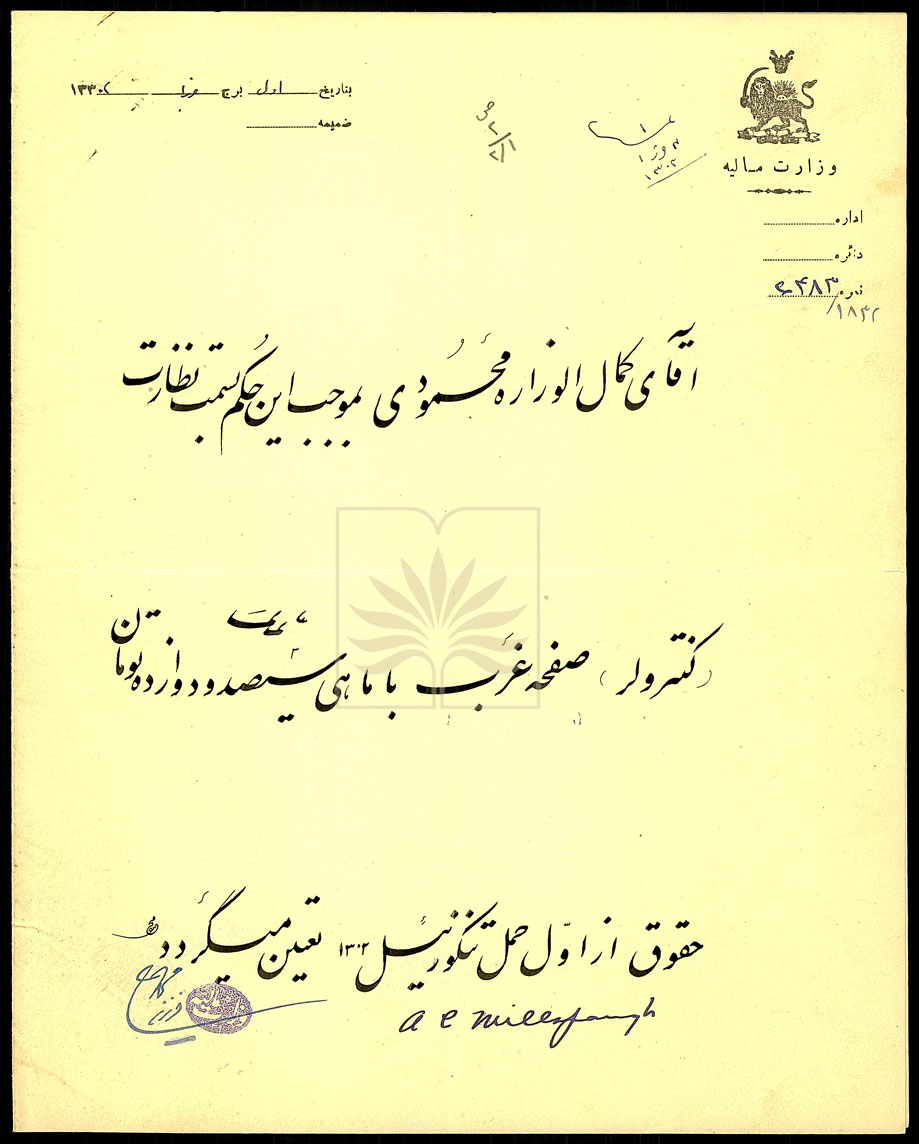 وزارت مالیه
اداره
دائره
نمره ۶۴۸۳
۱۸۳۲
بتاریخ اول برج جوزا ۱۳۳۰۲
ضمیمه
۱۳۰۲
آقای کمال الوزاره محمودی بموجب این حکم بسمت نظارت
(کنترولر) صفحه غرب با ماهی سیصد و دوازده تومان
حقوق از اول حمل تنگوزئیل ۱۳۰۲ تعیین میگردد
A C Millspaugh